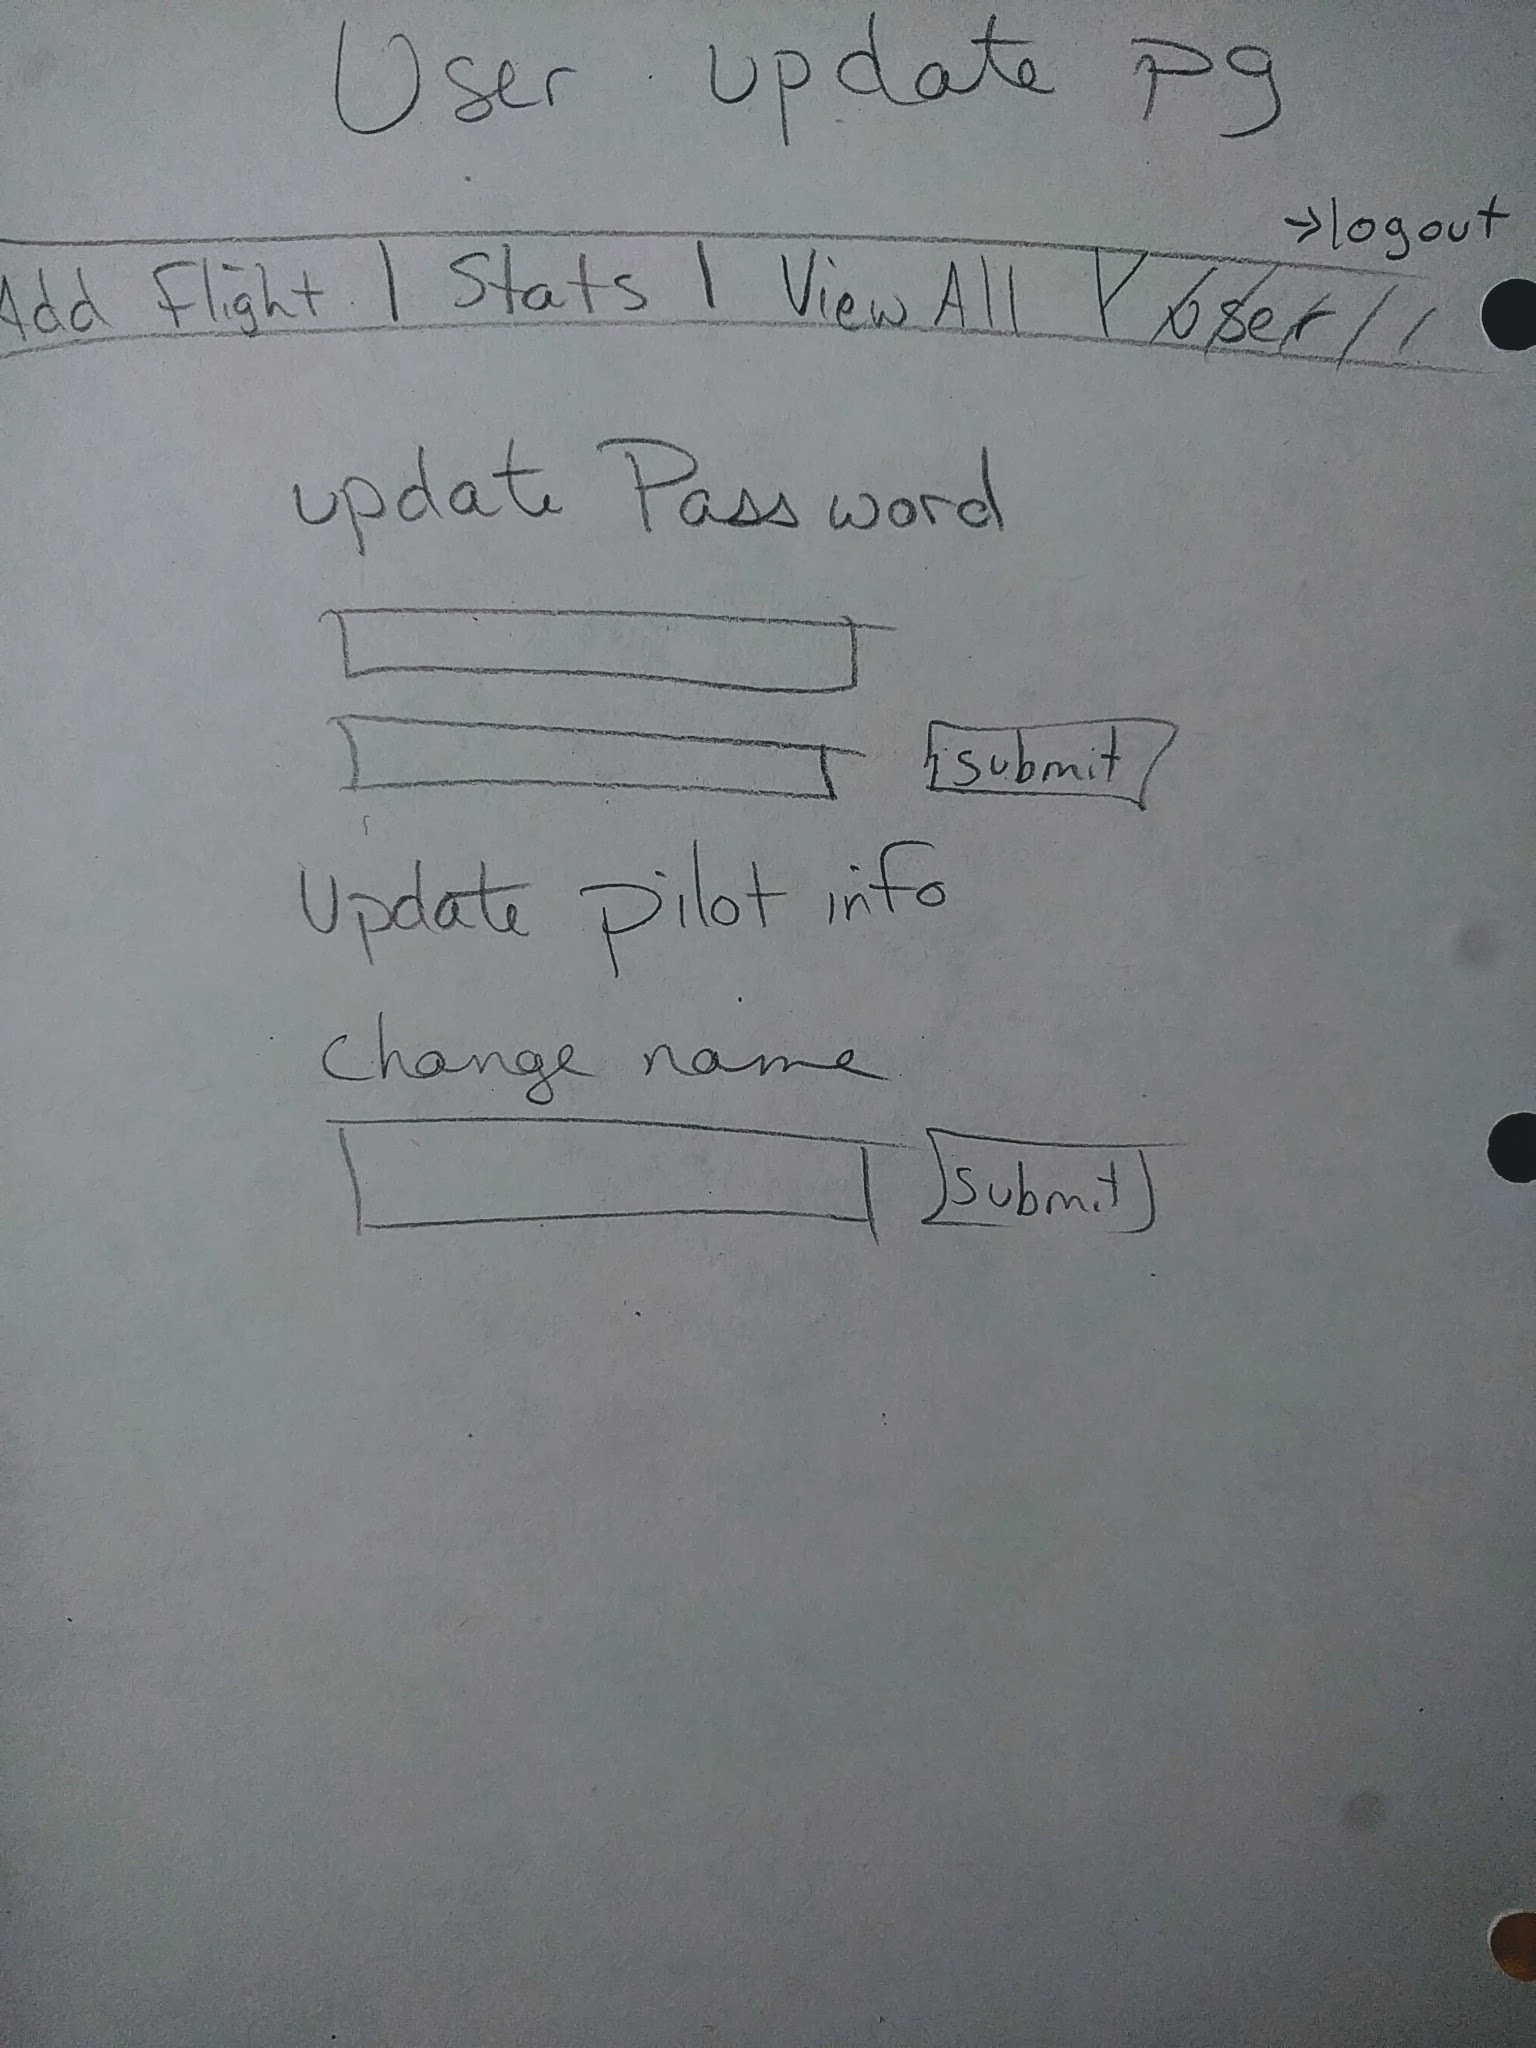 User update pg
→logout
Add Flight | Stats | View All | User
update Password
submit
Update pilot info
change name
submit